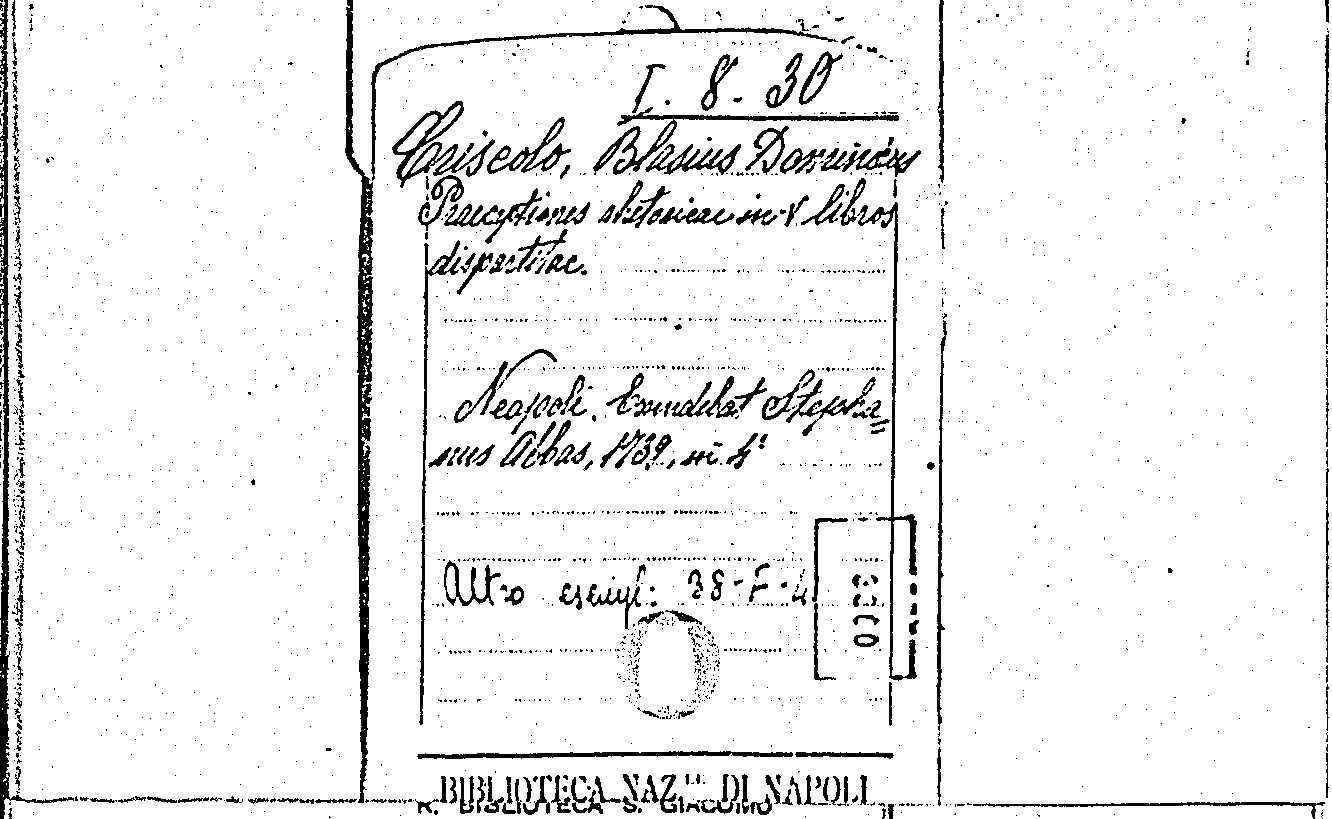 I. 8. 30
Criscolo, Blasius Dominicus
Praeceptiones rhetoricae in V libros
dispartitae.
Neapoli. Excudebat Stepha=
nus Abbas, 1739, in 4°
Altro esempl: 38-F-4
BIBLIOTECA NAZ.LE DI NAPOLI
R. BIBLIOTECA S. GIACOMO